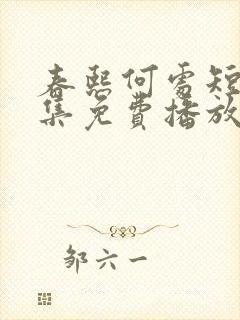 春熙何需短
集免费播放
邹六一